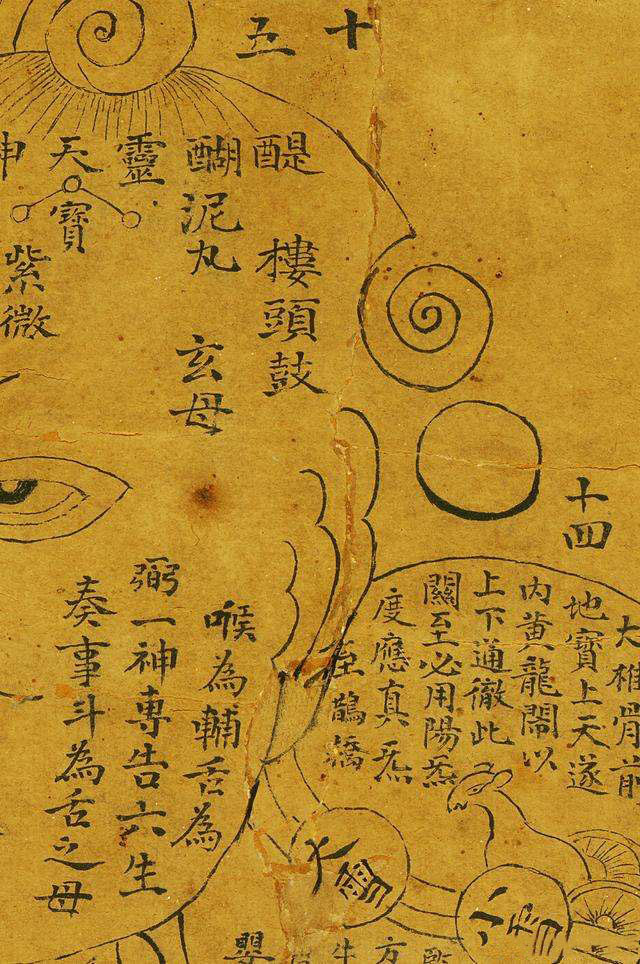 十五
醍醐
泥丸
靈
天寶
神
紫微
樓頭鼓
玄母
十四
大椎骨前
地寶上天遂
內黃龍閙以
上下通徹此
關至必用陽炁
度應真炁
在鵲橋
喉為輔舌為
弼一神專告六生
奏事斗為舌之母
大雪
小雪
方
牛
嬰